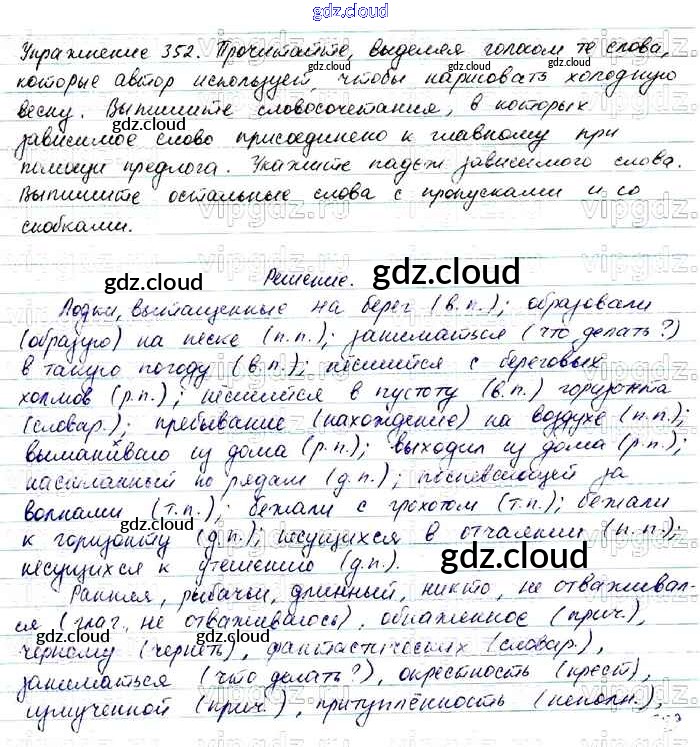 gdz.cloud
Упражнение 352. Прочитайте, выделяя голосом те слова,
которые автор использует, чтобы нарисовать холодную
весну. Выпишите словосочетания, в которых
зависимое слово присоединено к главному при
помощи предлога. Укажите падеж зависимого слова.
Выпишите остальные слова с пропусками и со
скобками.
Решение.
gdz.cloud
Лодки, вытащенные на берег (в.п.); образовали
(образую) на песке (п.п.); заниматься (что делать?)
в такую погоду (в.п.); несшийся с береговых
холмов (р.п.); несшийся в пустоту (в.п.) горизонта
(словар.); пребывание (нахождение) на воздухе (п.п.);
выманивало из дома (р.п.); выходил из дома (р.п.);
насыланный по рядам (д.п.); поспевающей за
волнами (т.п.); бежали с грохотом (т.п.); бежали
к горизонту (д.п.); несущихся в отчаянии (п.п.);
несущихся к утешению (д.п.).
gdz.cloud
Ранняя, рыбачьи, длинный, никто, не отваживал-
ся (глаг., не отваживалось), обнаженное (прич.),
черному (чернеть), фантастических (словар.),
заниматься (что делать?), окрестность (крест),
измученной (прич.), притуплённость (неполн.),